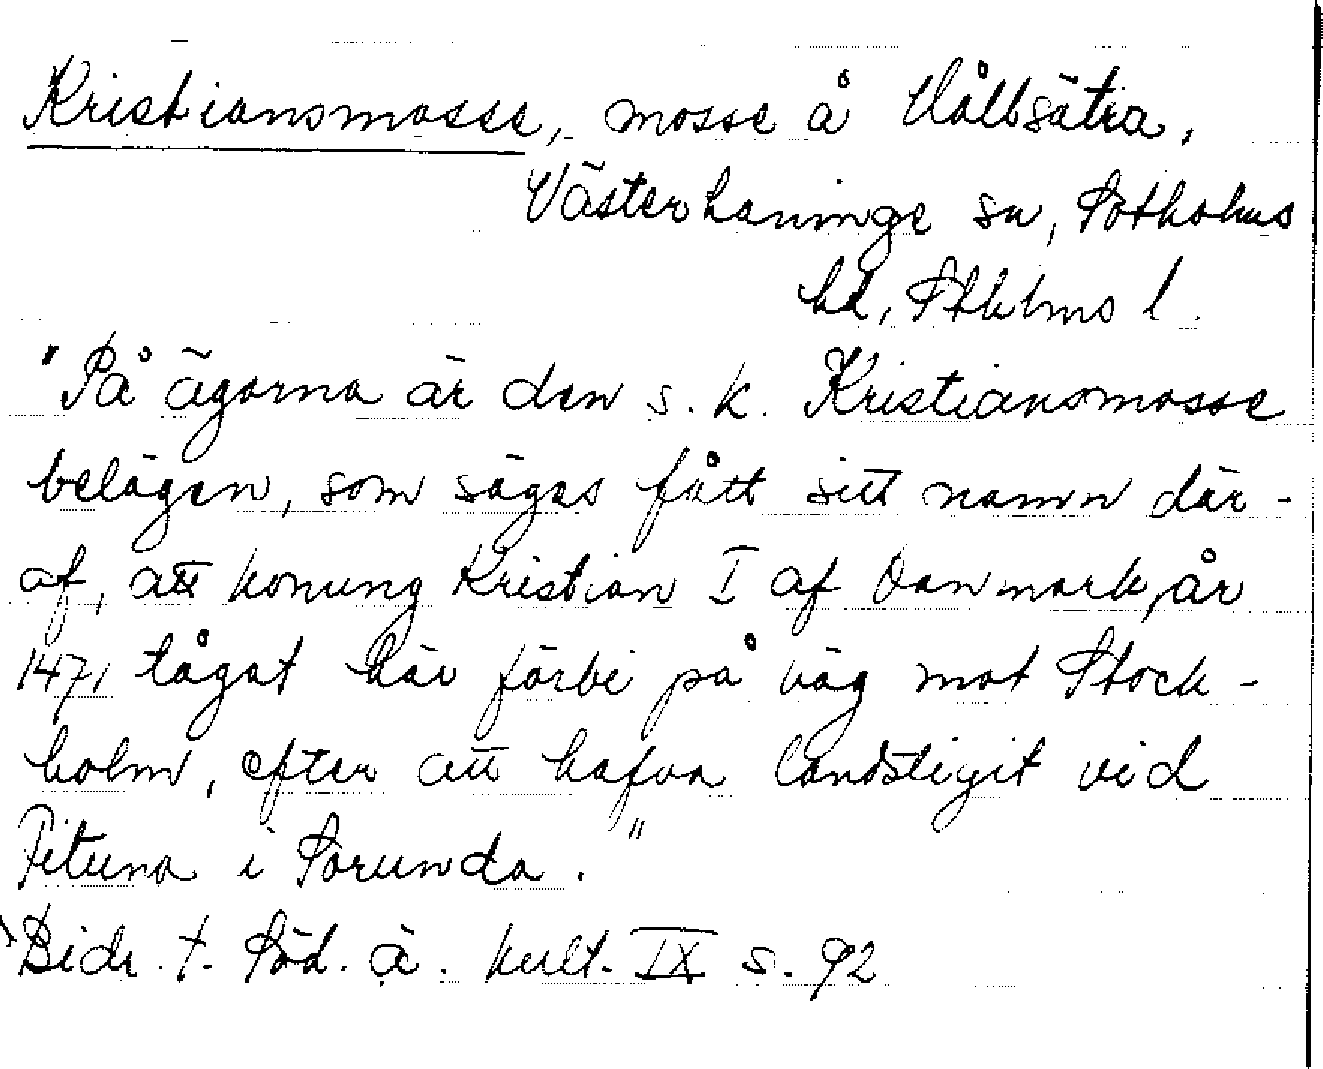 Kristiansmosse, mosse å Hållsätra,
Västerhaninge sn, Sotholms
hd, Sthlms l.
"På ägorna är den s. k. Kristiansmosse
belägen, som säges fått sitt namn där-
af, att konung Kristian I af Danmark, år
1471 tågat här förbi på väg mot Stock-
holm, efter att hafva landstigit vid
Fituna i Sorunda."
Bidr. t. Söd. ä. kult. IX s. 92